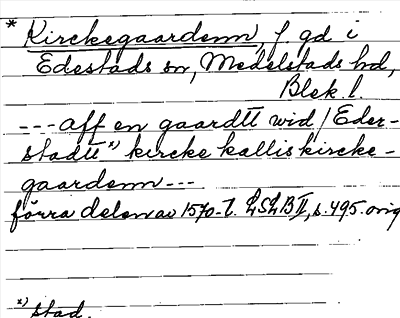 * Kirckegaardenn, f gd i
Edestads sn, Medelstads hd,
Blek l.
--- aff en gaardtt wid / Eder-
stadtt x) kircke kallis kircke-
gaardenn ---
förra delen av 1570-t. LSLB II, s. 495. orig
x) stad.